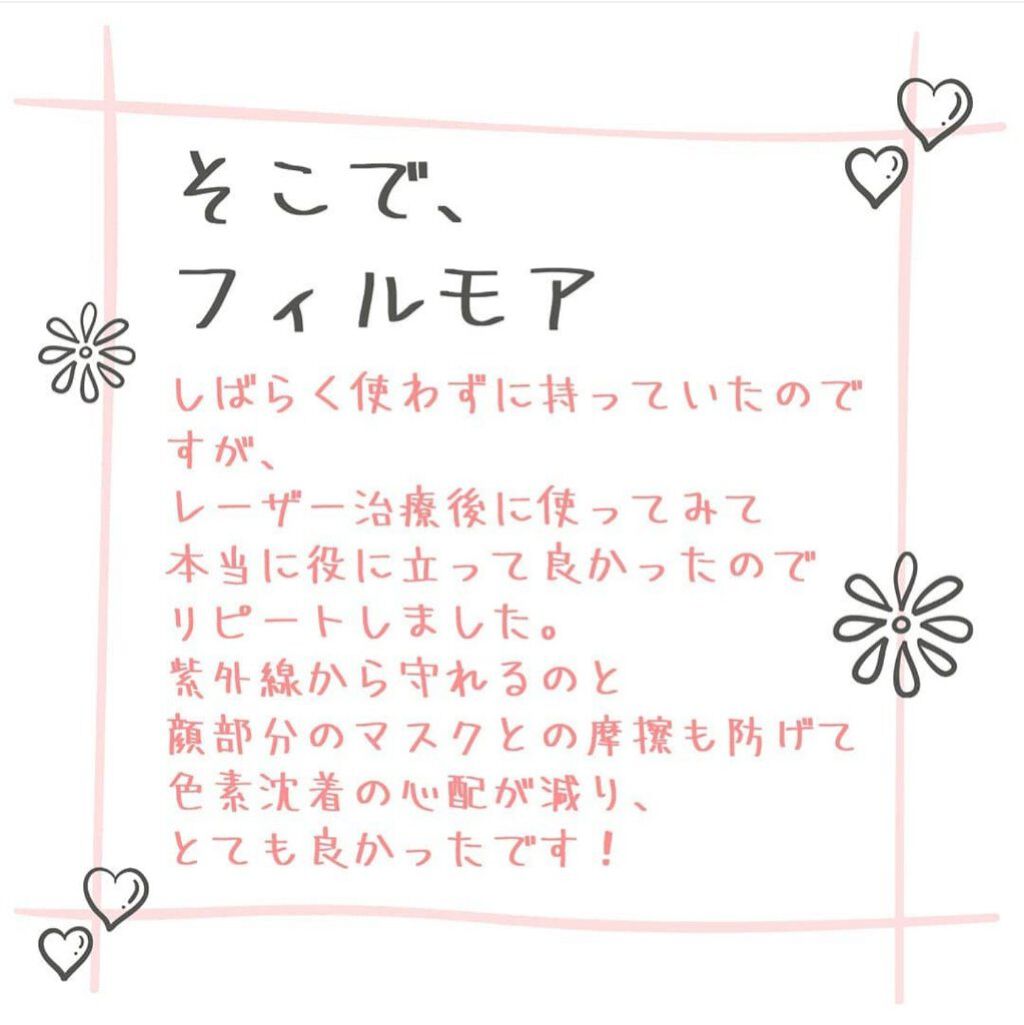 そこで、
フィルモア
しばらく使わずに持っていたので
すが、
レーザー治療後に使ってみて
本当に役に立って良かったので
リピートしました。
紫外線から守れるのと
顔部分のマスクとの摩擦も防げて
色素沈着の心配が減り、
とても良かったです！